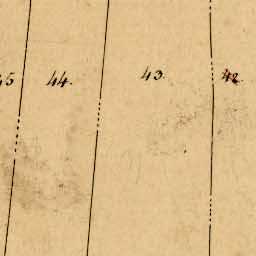 45 44. 43. 42